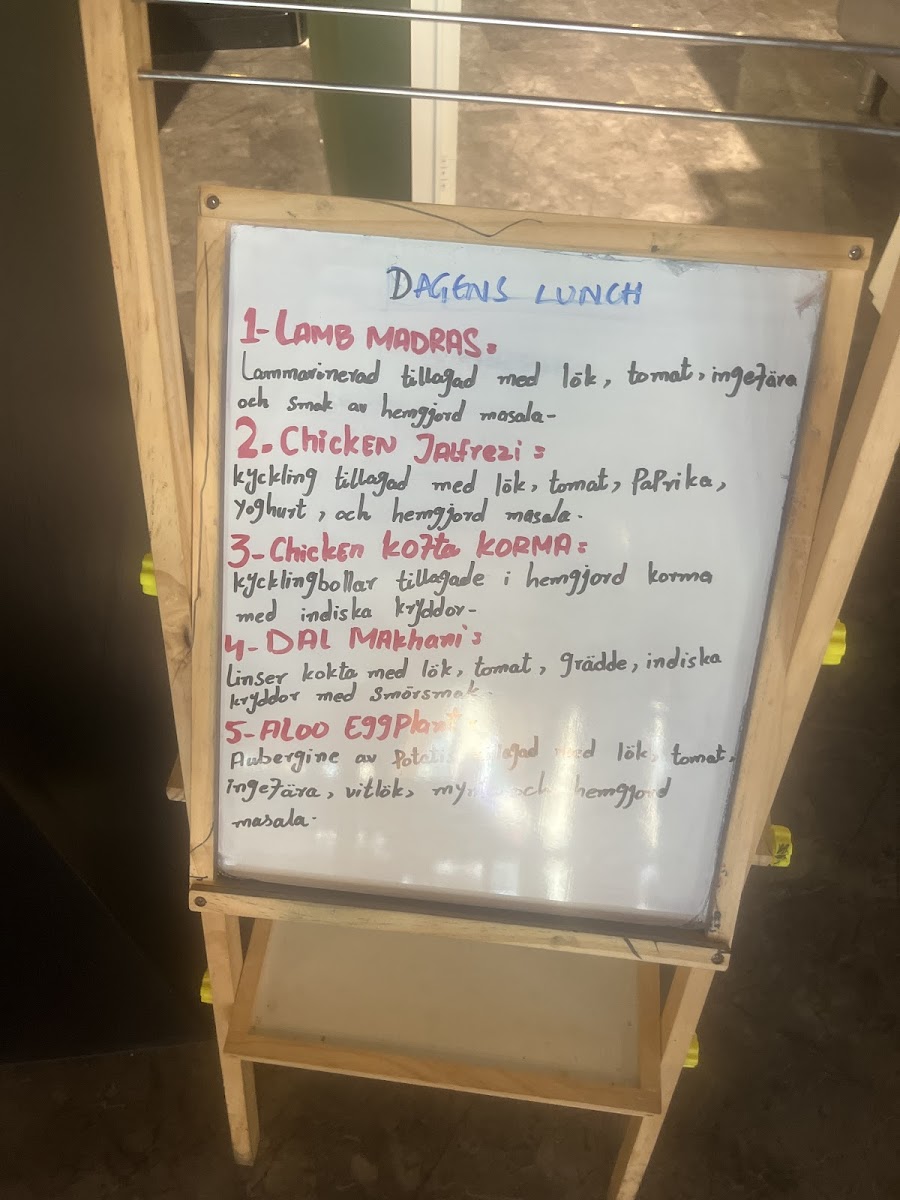 DAGENS LUNCH
1- LAMB MADRAS:
Lammarinerad tillagad med lök, tomat, ingefära
och smak av hemgjord masala-
2. Chicken Jalfrezi:
kyckling tillagad med lök, tomat, Paprika,
Yoghurt, och hemgjord masala.
3- Chicken kofta KORMA:
kycklingbollar tillagade i hemgjord korma
med indiska kryddor-
4- DAL Makhani:
Linser kokta med lök, tomat, grädde, indiska
kryddor med smörsmak.
5- ALOO EGGPlant
Aubergine av Potatis med lök, tomat,
Ingefära, vitlök, och hemgjord
masala.